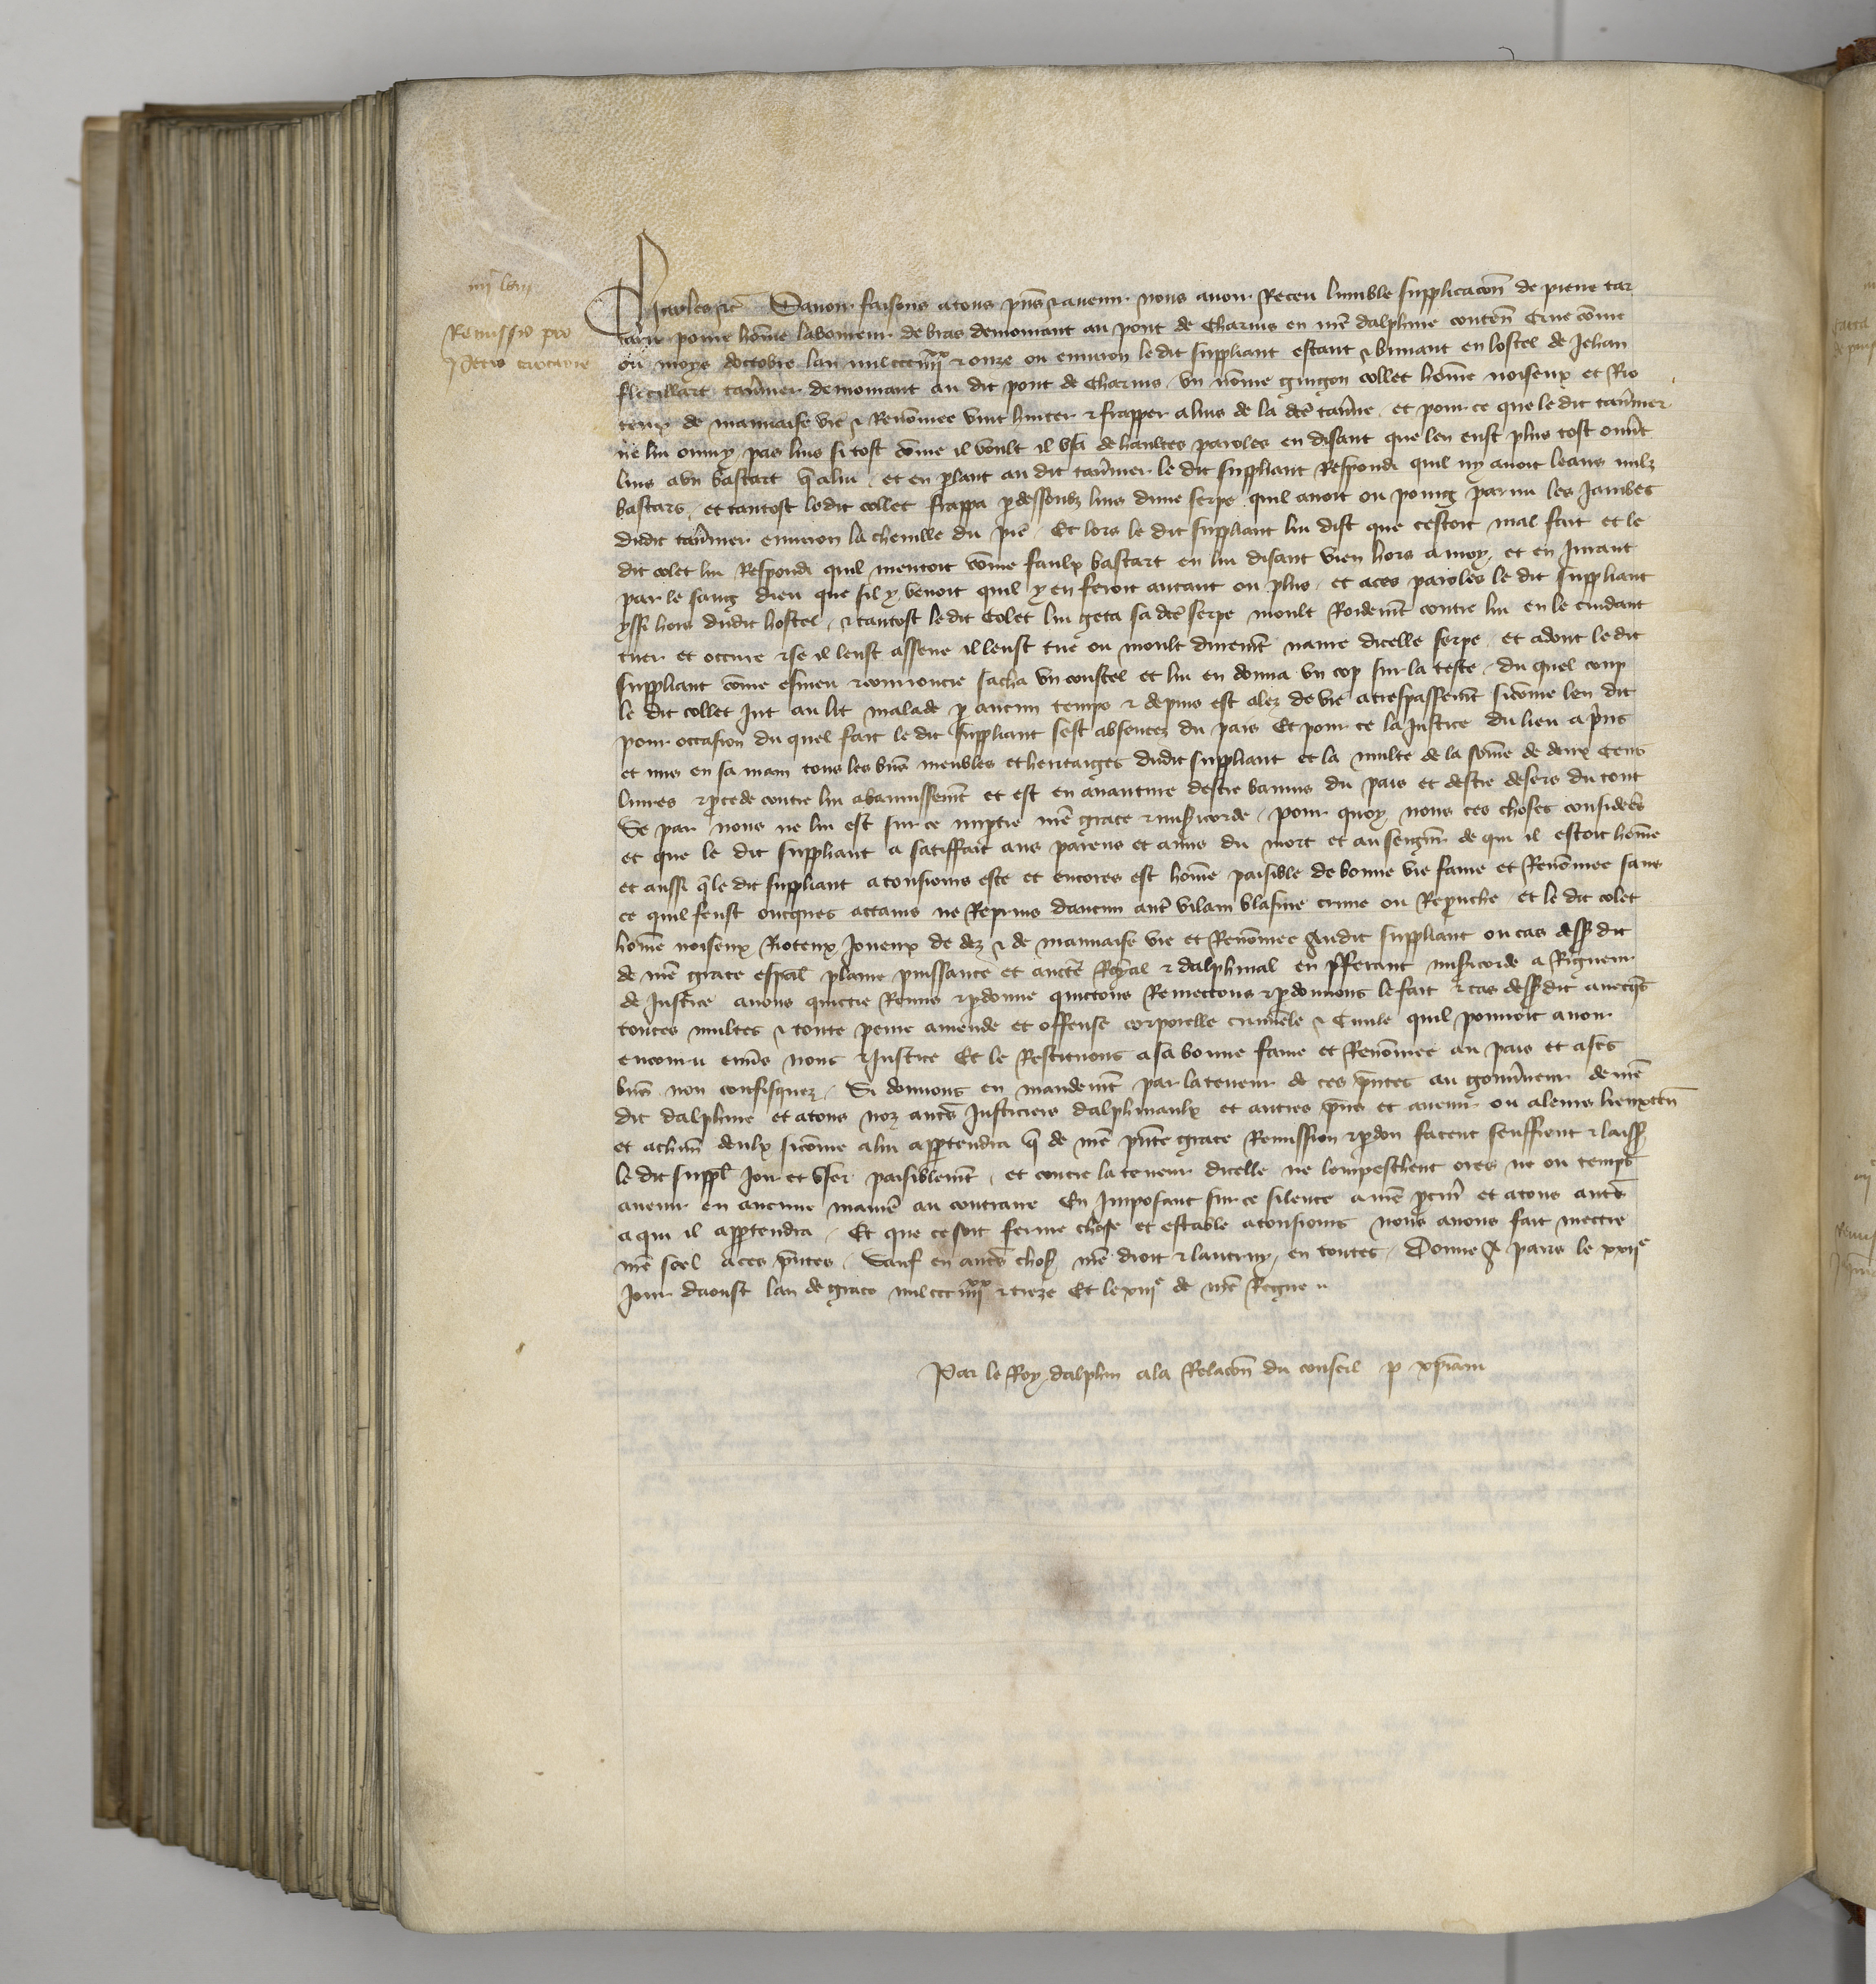 Remissio pro
Petro
Charles etc Savoir faisons a tous pñs et avenir nous avoir Receu lumble supplicacõn de pierre tar
povre hõme laboureur de bras demourant au pont de Charrus en nr̃e dalphine conteñ Que cõme
ou moys doctobre lan mil ccc iiiixx et onze ou environ le dit suppliant estant et buvant en lostel de Jehan
tav̾nier demourant au dit pont de Charrus vn nõme guigon collet hõme noiseux et Rio
teux de mauvaise vie et Renõmee vint hurter et frapper a luis de la dc̃e tav̾ne et pour ce que le dit tav̾nier
ne lui ouvry pas luis si tost cõme il voult il vsa de haultes paroles en disant que len eust plus tost ouv̾t
luis a vn bastart q̃ a lui et en p̱lant au dit tav̾nier le dit suppliant Respondi quil ny avoit leans nulz
bastars et tantost ledit collet frappa p̱ dessoubz luis dune serpe quil avoit ou poing parmi les jambes
dudit tav̾nier environ la cheville du pie Et lors le dit suppliant lui dist que cestoit mal fait et le
dit colet lui Respondi quil mentoit cõme faulx bastart en lui disant vien hors a moy et en jurant
par le sang dieu que sil y venoit quil y en feroit autant ou plus et a ces paroles le dit suppliant
yssi hors dudit hostel et tantost le dit Colet lui geta sa dc̃e serpe moult Roidem̃t contre lui en le cuidant
tuer et occire et se il leust assene il leust tue ou moult durem̃t navre dicelle serpe et adont le dit
suppliant cõme esmeu et courroucie sacha vn coustel et lui en donna vn cop sur la teste du quel coup
le dit collet Jut au lit malade p̱ aucun temps et depuis est alez de vie a trespassem̃t sicõme len dit
pour occasion du quel fait le dit suppliant sest absentez du pais Et pour ce la Justice du lieu a p̃ns
et mis en sa main tous les biẽs meubles et heritaiges dudit suppliant et la multe de la sõme de deux Cens
livres et p̱cede contre lui a bannissem̃t et est en avanture destre bannis du pais et destre desers du tout
Se par nous ne lui est sur ce imp̱tie nr̃e grace et mis̃icorde pour quoy nous ces choses considerẽs
et que le dit suppliant a satisfait aus parens et amis du mort et au seigñr de qui il estoit hõme
et aussi q̃ le dit suppliant a tousiours este et encores est hõme paisible de bonne vie fame et Renõmee sans
ce quil feust oncques actains ne Repris daucun aut̃ vilain blasme crime ou Reprouche et le dit colet
hõme noiseux Rioteux Joueux de dez et de mauvaise vie et Renõmee Audit suppliant ou cas dess̃ dit
de nr̃e grace esp̃al plaine puissance et auctẽ Royal et dalphinal en p̃ferant mis̃icorde a Rigueur
de justice avons quictie Remis et p̱donne quictons Remectons et p̱donnons le fait et cas dess̃ dit avecq̃s
toutes multes et toute peine amende et offense corporelle crimĩele et Civile quil pourroit avoir
encouru env̾s nous et Justice Et le Restituons a sa bonne fame et Renõmee au pais et a sc̃s
biẽs non confisquez Si donnons en mandem̃t par la teneur de ces p̃ntes au gouv̾neur de nr̃e
dit dalphine et a tous noz autẽs Justiciers dalphinaulx et autres p̃ns et avenir ou a leurs lieuxteñ
et a chũn deulx sicõme a lui app̱tendra q̃ de nr̃e p̃nte grace Remission et p̱don facent seuffrent et laiss̃
le dit suppl̃ Joir et vser paisiblem̃t et contre la teneur dicelle ne lempeschent ores ne ou temps
avenir en aucune maniẽ au contraire En Imposant sur ce silence a nr̃e p̱cur̃ et a tous autẽs
a qui il app̱tendra Et que ce soit ferme chose et estable a tousiours nous avons fait mectre
nr̃e seel a ces p̃ntes Sauf en autẽs chos̃ nr̃e droit et lautruy en toutes Donne A paris le xxiie
jour daoust lan de grace mil ccc iiiixx et treze Et le xiiie de nr̃e Regne
Par le Roy dalphin a la Relacõn du conseil p̱ xp̃iani